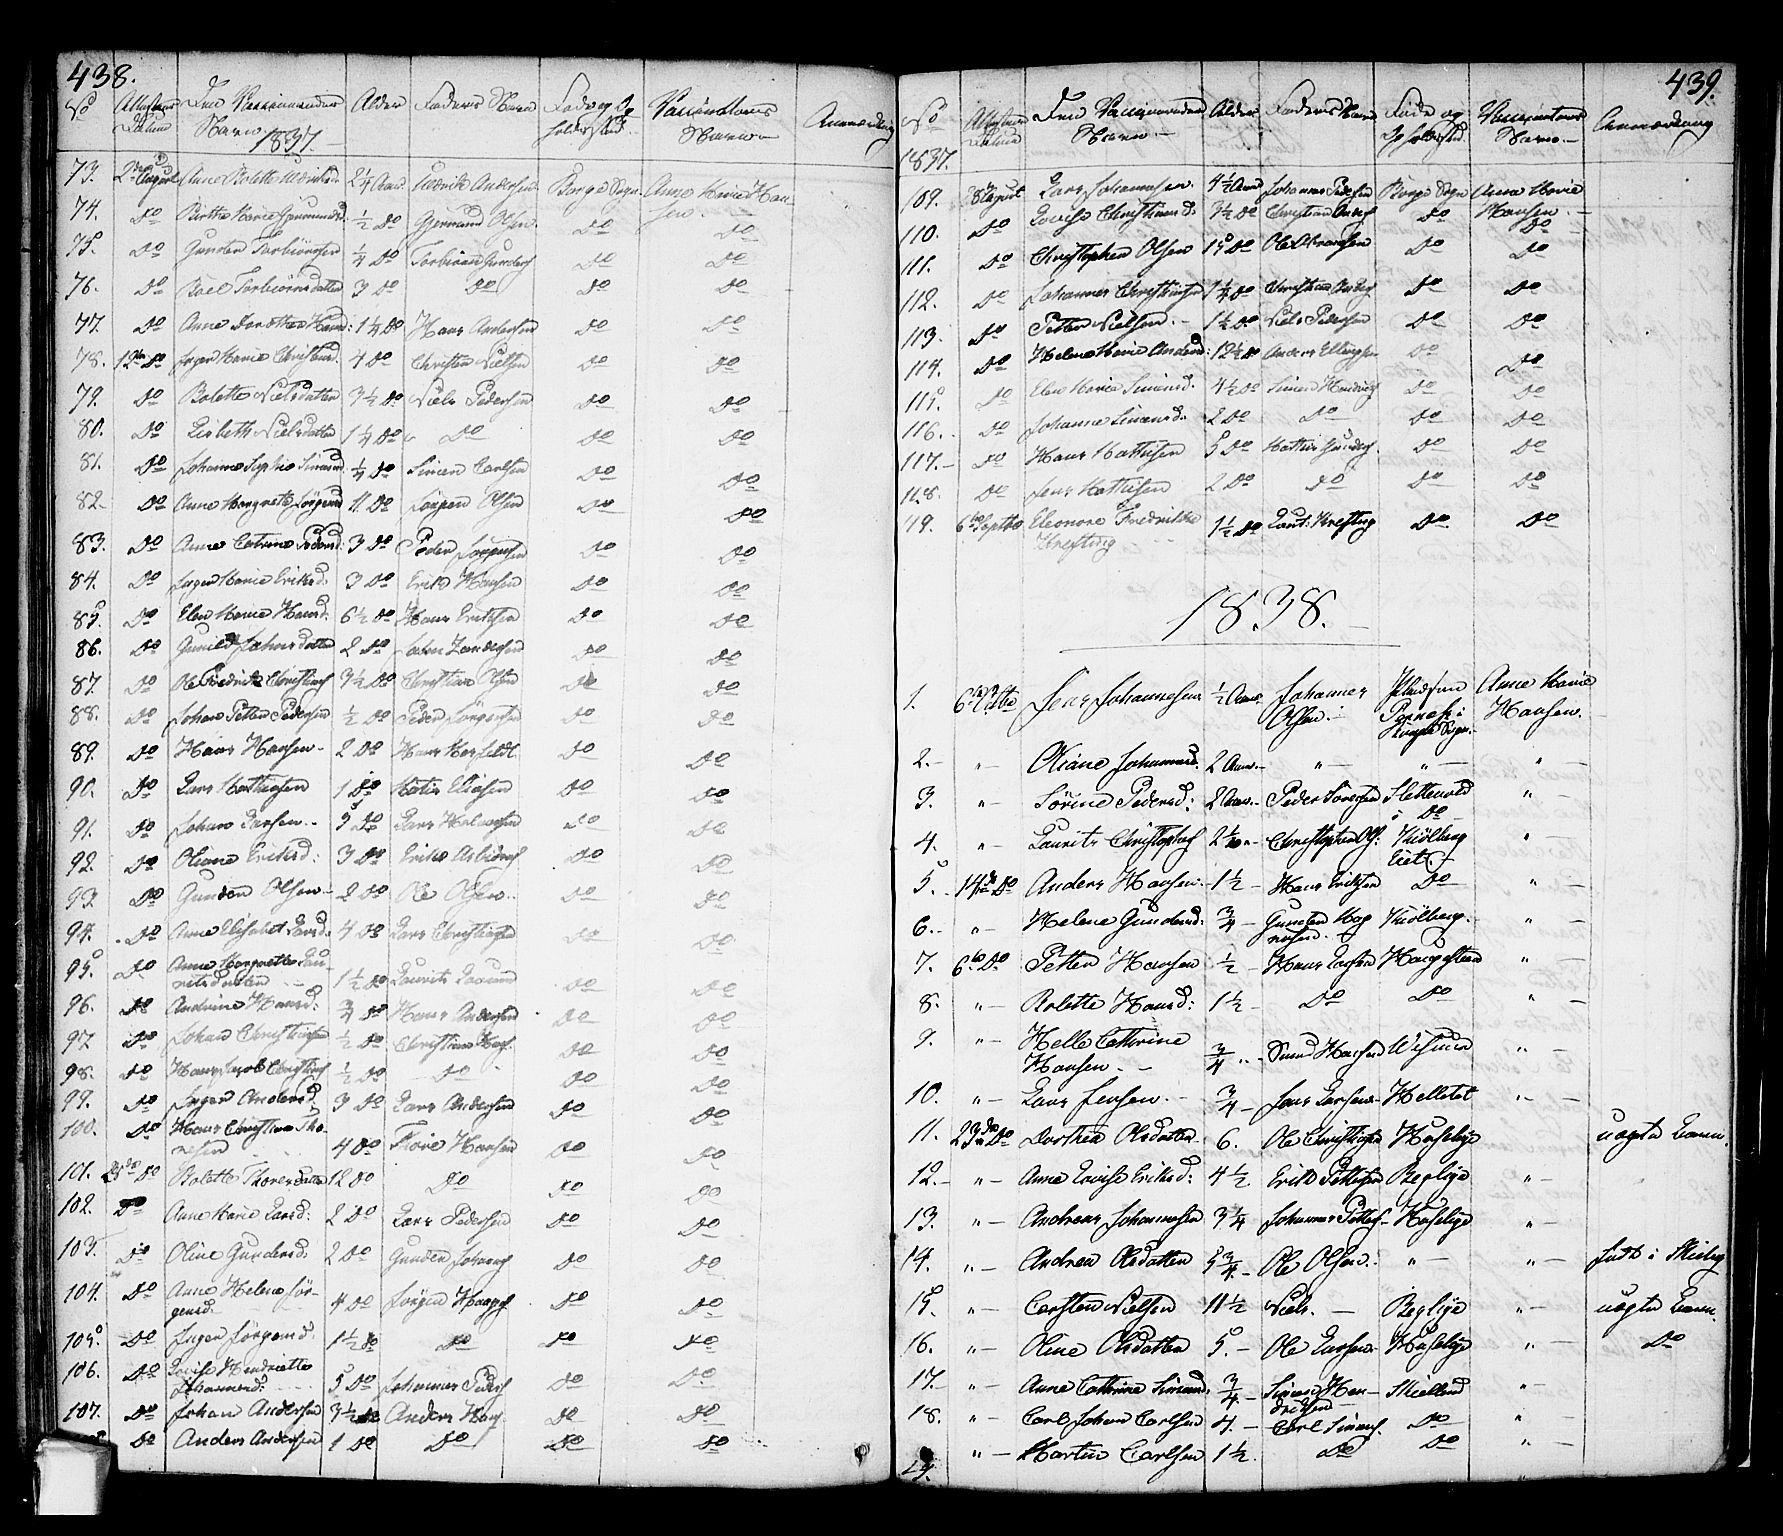 438.
No Attestens Datum Den Vaccineredes Navn Alder Faderes Navn Fødested og Opholdsted Vaccinateurs Navn Anmærkning
1837.
73. 2den August Anne Bolette Uldriksd. 2 1/4 Aar Uldrik Andersen Borge Sogn Anne Marie Han-
sen.
74. Do Birthe Marie Gjermunds. 1/2 Do Gjermund Olsen Do Do
75. Do Gunder Torbiørnsen 1/4 Do Torbiørn Gunders Do Do
76. Do Boel Torbiørnsdatter 3 Do Do Do Do
77. Do Anne Dorothea Hansd: 1 1/4 Do Hans Andersen Do Do
78. 12te Do Inger Marie Christensd. 4 Do Christen Nielsen Do Do
79. Do Bolette Nielsdatter 3 1/2 Do Niels Pedersen Do Do
80. Do Lisbeth Nielsdatter 1 1/4 Do Do Do Do
81. Do Johanne Sophie Simensd. 1/4 Do Simen Carlsen Do Do
82. Do Anne Margrethe Jørgensd 11 Do Jørgen Olsen Do Do
83. Do Anne Catrine Pedersd: 3 Do Peder Jørgensen Do Do
84. Do Inger Marie Eriksd. 3 Do Erik Hansen Do Do
85. Do Elen Marie Hansd. 6 1/2 Do Hans Eriksen Do Do
86. Do Gunild Johnsdatter 2 Do John Zandersen Do Do
87. Do Ole Fredrik Christians 3 1/2 Do Christian Olsen Do Do
88. Do Johan Petter Pedersen 1/2 Do Peder Jørgensen Do Do
89. Do Hans Hansen 2 Do Hans Herfeldt Do Do
90. Do Lars Mathisen 1 Do Matis Eliasen Do Do
91. Do Johan Larsen 5 Do Lars Halvorsen Do Do
92. Do Oliane Eriksd: 3 Do Erik Asbiørns Do Do
93. Do Gunder Olsen 2 Do Ole Olsen Do Do
94. Do Anne Elisabet Larsd: 4 Do Lars Christiansen Do Do
95. Do Anne Margrethe Lau-
ritsdatter 1 1/2 Do Laurits Do Do
96. Do Andrine Hansd: 3/4 Do Hans Andersen Do Do
97 Do Johan Christiansen 1/2 Do Christian Do Do
98. Do Hans Jacob Christians 1/2 Do Do Do Do
99. Do Inger Andersd. 3 Do Lars Andersen Do Do
100. Do Hans Christian Tho-
resen 4 Do Thore Hansen Do Do
101. 23de Do Bolette Thoresdatter 12 Do Do Do Do
102. Do Anne Marie Larsd: 2 Do Lars Pedersen Do Do
103. Do Oline Gundersd: 2 Do Gunder Johans Do Do
104. Do Anne Helene Jør-
gensd. 4 Do Jørgen Do Do
105. Do Inger Jørgensd. 1 1/2 Do Do Do Do
106. Do Lovise Henriette
Johannesd: 5 Do Johannes Peders Do Do
107. Do Johan Andersen 3 1/2 Do Anders Do Do
Do Anders Andersen 1 Do Do Do Do
439.
No Attestens Datum Den Vaccineredes Navn Alder Faderes Navn Føde og Opholdsted Vaccinateurs Navn Anmærkning
1837.
109. August Lars Johannesen 4 1/2 Aar Johannes Pedersen Borge Sogn Anne Marie
Hansen.
110. Do Lovise Christiansd. 3 1/2 Do Christian Do Do
111. Do Christopher Olsen 15 Do Ole Do Do
112. Do Johannes Christiansen 1/4 Do Christian Do Do
113. Do Petter Nielsen. 1 1/2 Do Niels Pedersen Do Do
114. Do Helene Marie Andersd: 12 1/2 Do Anders Ellingsen Do Do
115. Do Elen Maria Simensd. 4 1/2 Do Simen Hendrichs Do Do
116. Do Johanne Simensd. 2 Do Do Do Do
117. Do Hans Mathisen 5 Do Mathis Gunders. Do Do
118. Do Jens Mathisen 2 Do Do Do Do
49. 6te Septbr Eleonore Fredrikke
Krefting 1 1/2 Do Krefting Do Do
1838.
1. Jens Johannesen 1/2 Aar Johannes
Olsen Sogn Anne Marie
Hansen.
2. " Oliane Johannesd. 2 Aar " " "
3. " Sørine Pedersd: 2 Aar Peder Sørensen Slettevold "
Do
4. " Laurits Christophers 2 1/2 " Christopher Ols. Kiølberg "
Eiet.
5. 14de Do Anders Hansen 1 1/2 Hans Eriksen Do "
6. " Helene Gundersd: 3/4 Gunder Mag
nusen. Kiølberg. "
7. 6te Do Petter Hansen 1/2 Hans Larsen Haugsteen "
8. " Bolette Hansd: 1 1/2 Do Do "
9. " Helle Cathrine
Hansen 3/4 " Svend Hansen "
10. " Lars Jensen. 3/4 Jens Larsen Helletet "
11. 23de Do Dorthea Olsdatter 6. Ole Christiansen Haselige uægte Barn.
12. " Anne Lovise Eriksd: 4 1/2 Erik Pettersen Beglige "
13. " Andreas Johannesen 3 1/4 Johannes Petters. Haselige "
14. " Andrea Olsdatter 5 3/4 Ole Olsen " " født i Skieberg
15. " Carsten Nielsen 11 1/2 Niels. Beglige " uægte Barn.
16. " Oline Olsdatter 5. Ole Larsen Haselige " Do
17. " Anne Cathrine Simensd. 3/4 Simen Hen-
driksen Skiellund "
18. " Carl Johan Carlsen 4. Carl Simens. Do "
19. " Martin Carlsen 1 1/2 Do Do "